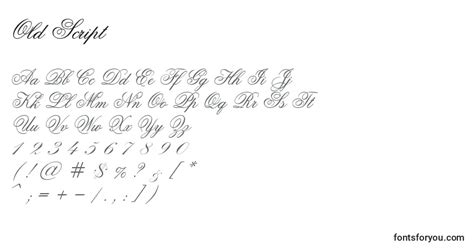 Old Script
Aa Bb Cc Dd Ee Ff Gg Hh Ii Jj
Kk Ll Mm Nn Oo Pp Qq Rr Ss Tt
Uu Vv Ww Xx Yy Zz
1 2 3 4 5 6 7 8 9 0
( ! @ # $ % ? & [ *
^ ; = + - / , . : ] )
fontsforyou.com